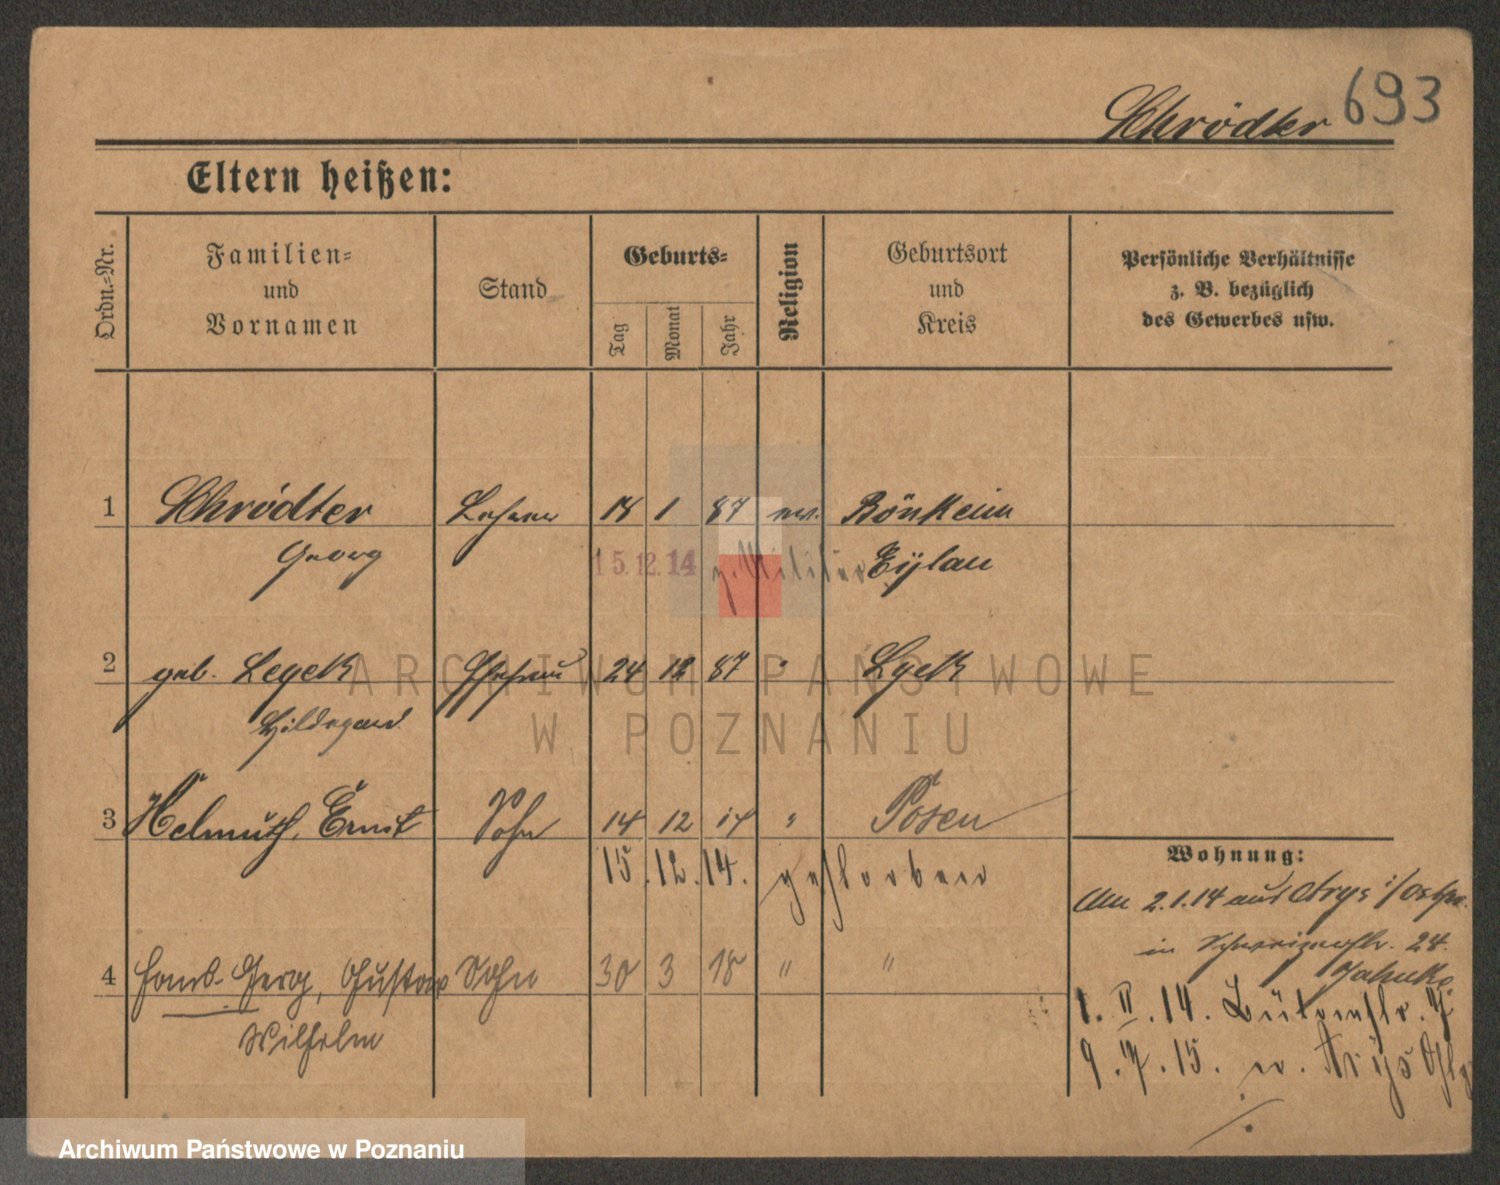 Schrödter 693
Eltern heißen:
Ordn.-Nr.
Familien-
und
Vornamen
Stand
Geburts-
Tag
Monat
Jahr
Religion
Geburtsort
und
Kreis
Persönliche Verhältnisse
z. B. bezüglich
des Gewerbes usw.
1 Schrödter Lehrer 18 1 87 ev. Bönkeim
Georg 15.12.14 z. Militär Eylau
2 geb. Legek Ehefrau 24 12 87 " Lyck
Hildegard
3 Helmuth, Ernst Sohn 14 12 14 " Posen
15.12.14. gestorben
Wohnung:
Am 2.1.14 aus Arys i/Ostpr.
in 24.
4 Hans- Georg, Gustav Sohn 30 3 18 " "
Wilhelm
1. II. 14. 
9. 7. 15. n. Arys
ARCHIWUM PAŃSTWOWE
W POZNANIU
Archiwum Państwowe w Poznaniu